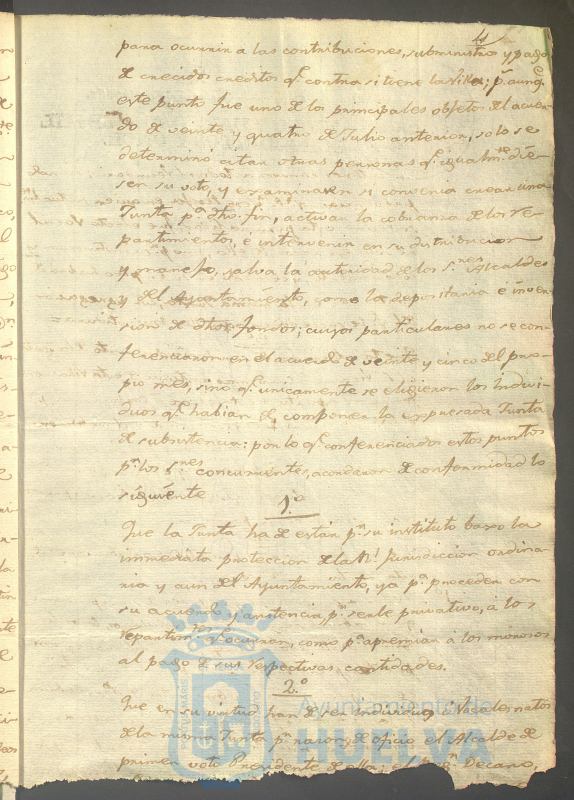 4
para ocurrir a las contribuciones, subministros y pago
de crecidos creditos qe. contra si tiene la Villa; ps. aunqe.
este punto fue uno de los principales objetos del acuer-
do de veinte y quatro de Julio anterior, solo se
determinó citar otras personas qe. igualmte. die-
sen su voto, y examinaren si convenia crear una
Junta pa. dho. fin, activar la cobranza de los re-
partimientos, é intervenir en su distribucion
y manejo, salva la autoridad de los Sres. Alcaldes
y del Ayuntamiento, como la depositaria é inver-
sion de dhos. fondos; cuyos particulares no se con-
ferenciaron en el acuerdo de veinte y cinco del pro-
pio mes, sino qe. unicamente se eligieron los Indivi-
duos qe. habian de componer la expresada Junta
de subsistencia: por lo qe. conferenciados estos puntos
pr. los Sres. concurrentes, acordaron de conformidad lo
siguiente
1.º
Que la Junta ha de estar pr. su instituto baxo la
immediata proteccion de la Rl. Jurisdiccion ordina-
ria y aun del Ayuntamiento, ya pa. proceder con
su acuerdo y asistencia, pr. serle privativo, á los
repartimtos. qe. ocurran, como pa. apremiar á los morosos
al pago de sus respectivas cantidades.
2.º
Que en su virtud han de ser Individuos ó Vocales natos
de la misma Junta pr. razon de oficio el Alcalde de
primer voto Presidente de ella; el Decano,
Ayuntamiento de
HUELVA